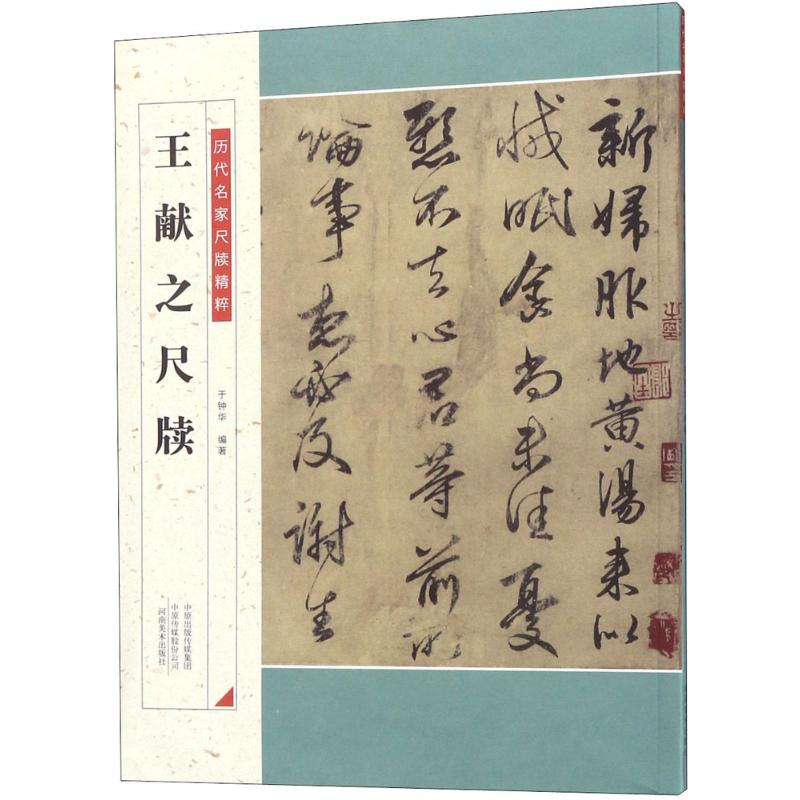 历代名家尺牍精粹
王献之尺牍
于钟华 编著
中原出版传媒集团
中原传媒股份公司
河南美术出版社
新婦服地黄湯来似
減眠食尚未佳憂
懸不去心君等前所
論事想必及謝生